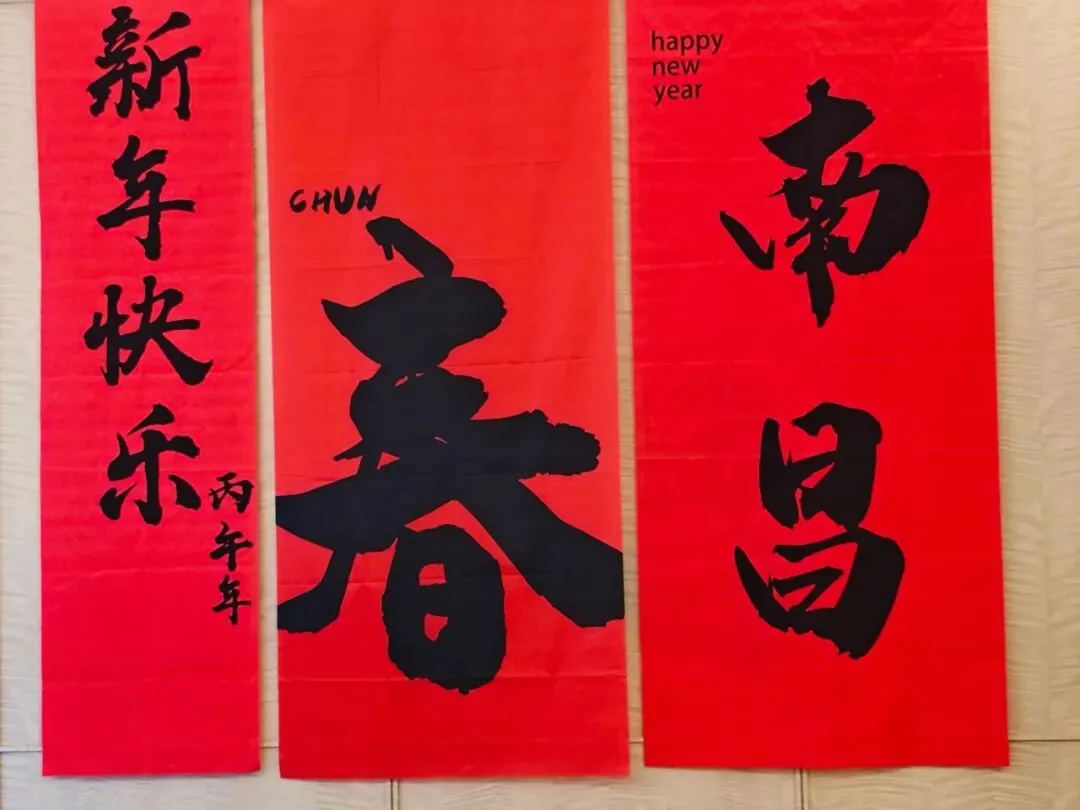 新年快乐
丙午年
CHUN
春
happy
new
year
南昌